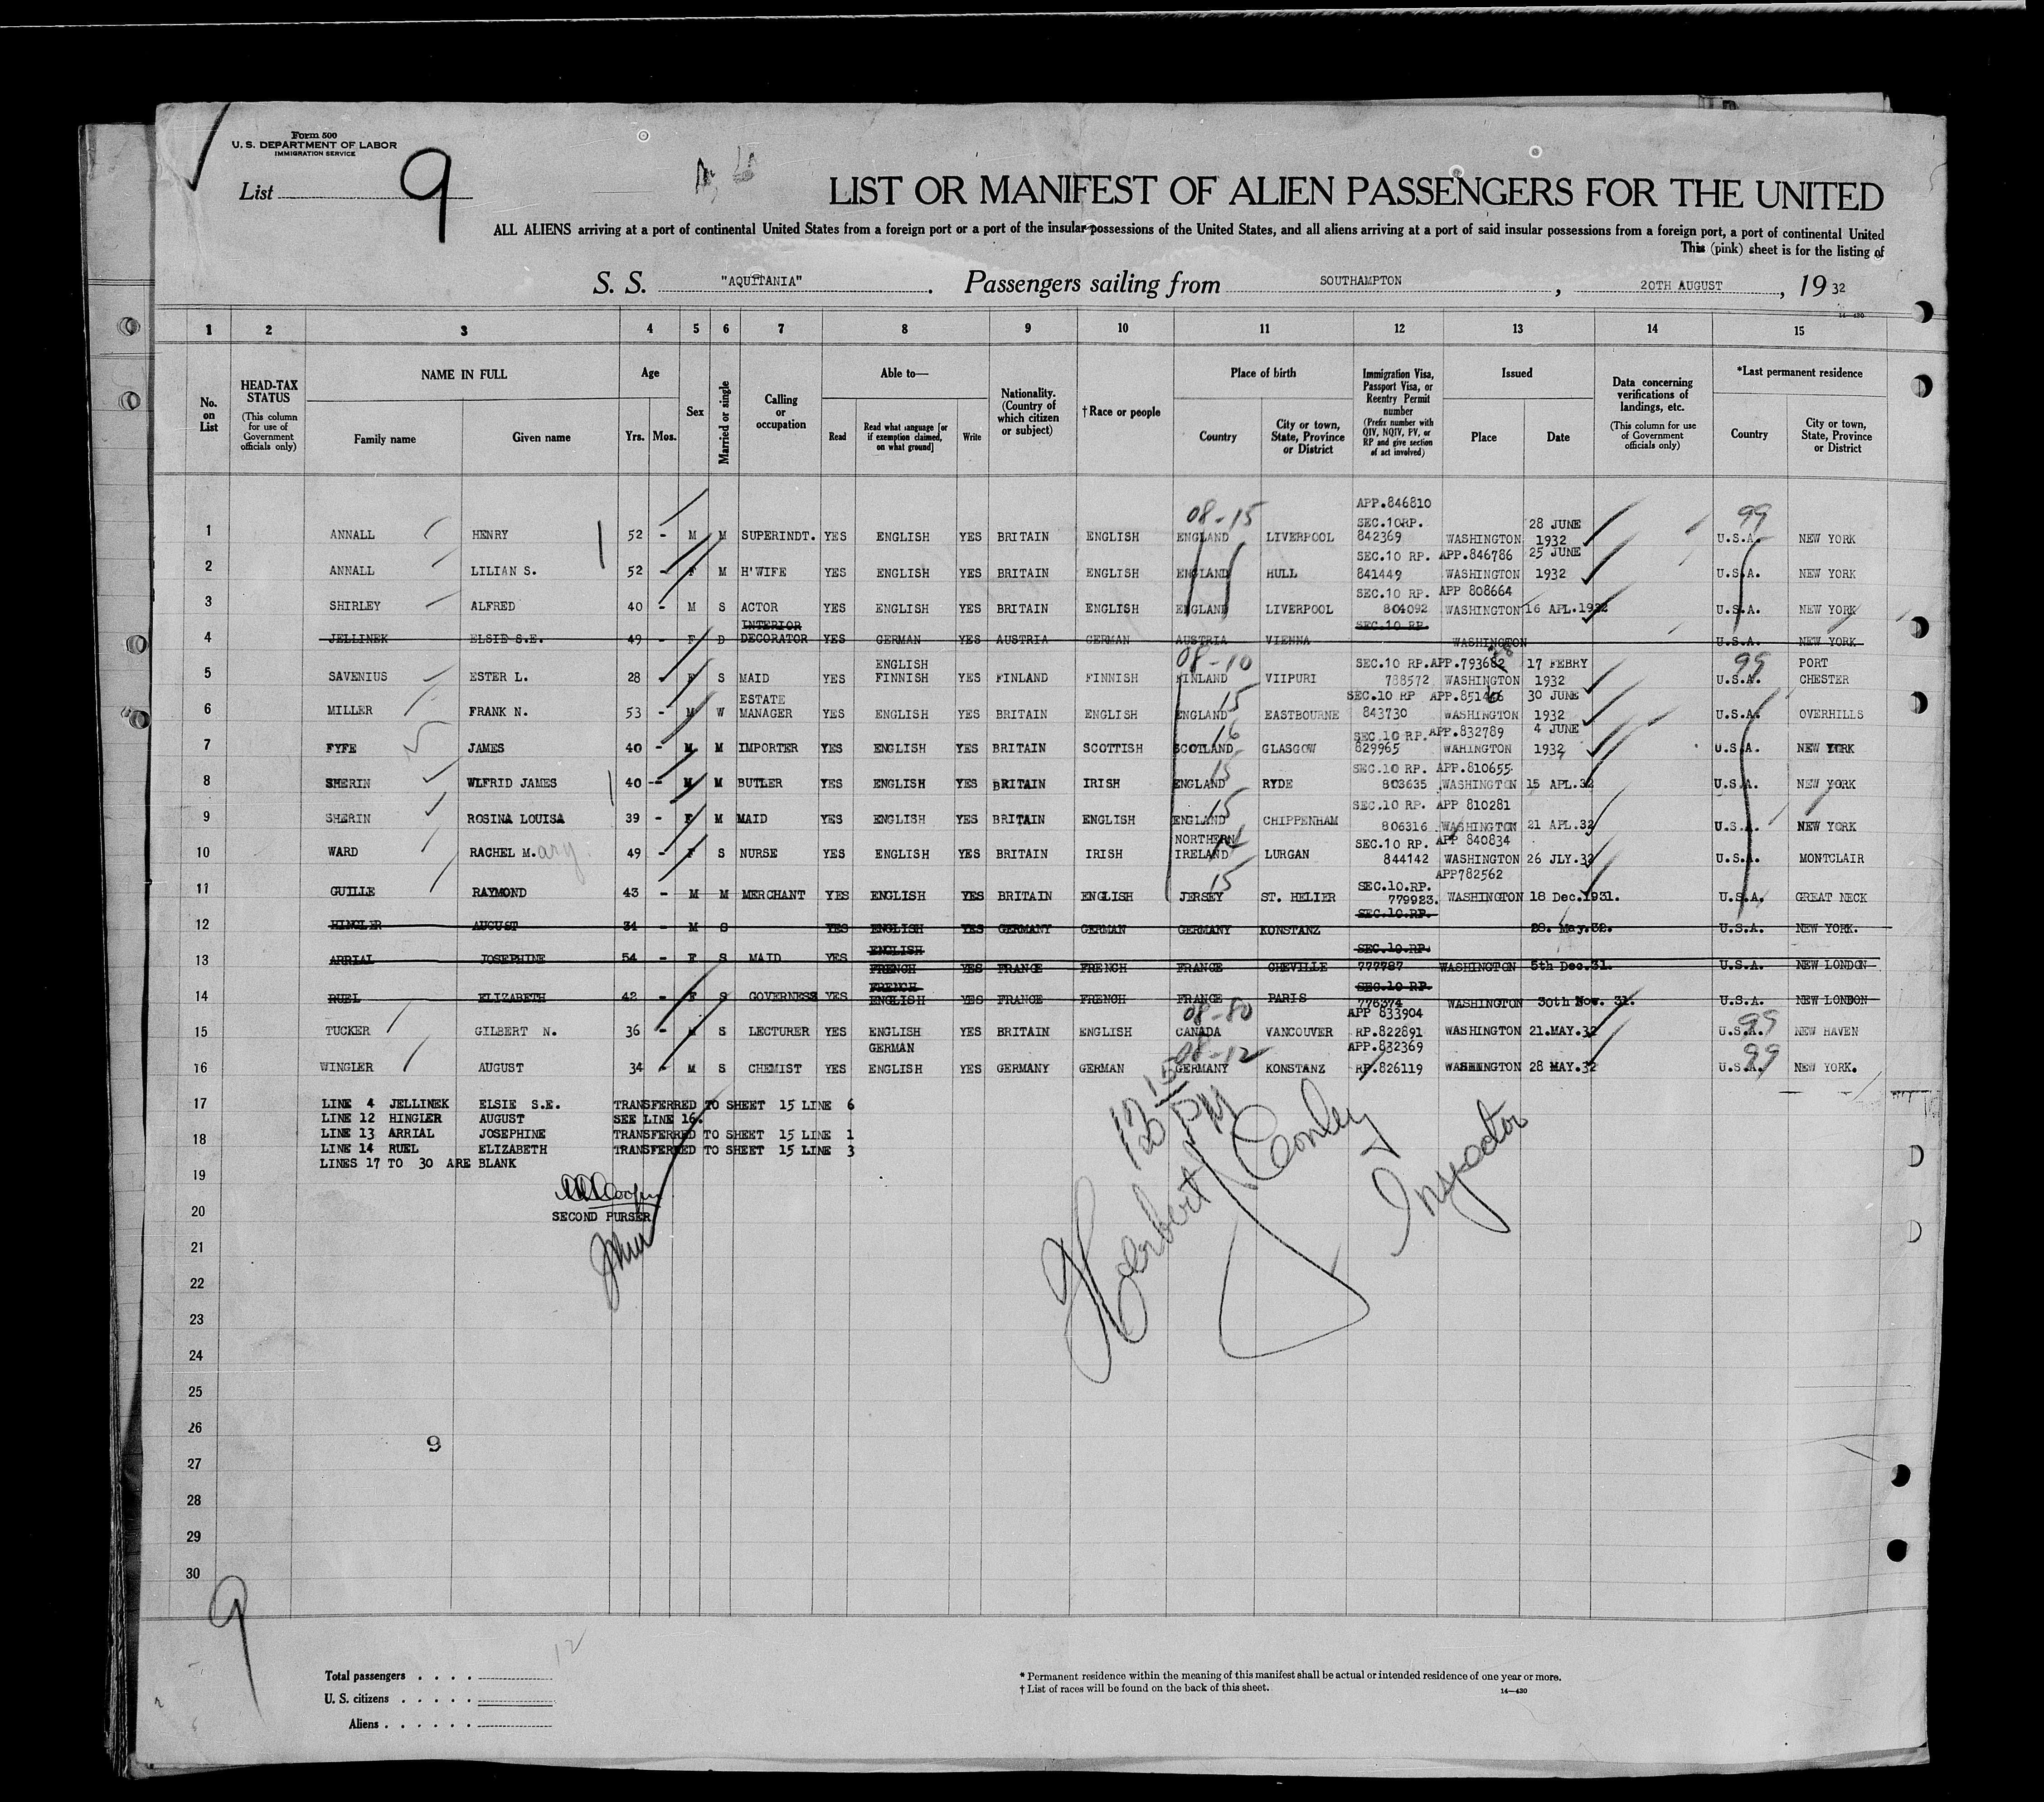 Form 500
U. S. DEPARTMENT OF LABOR
IMMIGRATION SERVICE
List 9
LIST OR MANIFEST OF ALIEN PASSENGERS FOR THE UNITED
ALL ALIENS arriving at a port of continental United States from a foreign port or a port of the insular possessions of the United States, and all aliens arriving at a port of said insular possessions from a foreign port, a port of continental United
This (pink) sheet is for the listing of
S. S. "AQUITANIA". Passengers sailing from SOUTHAMPTON, 20TH AUGUST, 1932
14—430
1 2 3 4 5 6 7 8 9 10 11 12 13 14 15
No. on List
HEAD-TAX STATUS
(This column for use of Government officials only)
NAME IN FULL
Family name Given name
Age
Yrs. Mos.
Sex
Married or single
Calling or occupation
Able to—
Read
Read what language [or if exemption claimed, on what ground]
Write
Nationality. (Country of which citizen or subject)
†Race or people
Place of birth
Country
City or town, State, Province or District
Immigration Visa, Passport Visa, or Reentry Permit number
(Prefix number with QIV, NQIV, PV, or RP and give section of act involved)
Issued
Place Date
Data concerning verifications of landings, etc.
(This column for use of Government officials only)
*Last permanent residence
Country
City or town, State, Province or District
APP.846810
08-15 SEC.10RP. 28 JUNE 99
1 ANNALL HENRY 52 - M M SUPERINDT. YES ENGLISH YES BRITAIN ENGLISH ENGLAND LIVERPOOL 842369 WASHINGTON 1932 U.S.A. NEW YORK
SEC.10 RP. APP.846786 25 JUNE
2 ANNALL LILIAN S. 52 - F M H'WIFE YES ENGLISH YES BRITAIN ENGLISH ENGLAND HULL 841449 WASHINGTON 1932 U.S.A. NEW YORK
SEC.10 RP. APP 808664
3 SHIRLEY ALFRED 40 - M S ACTOR YES ENGLISH YES BRITAIN ENGLISH ENGLAND LIVERPOOL 804092 WASHINGTON 16 APL.1932 U.S.A. NEW YORK
INTERIOR SEC.10 RP.
4 JELLINEK ELSIE S.E. 49 - F D DECORATOR YES GERMAN YES AUSTRIA GERMAN AUSTRIA VIENNA WASHINGTON U.S.A. NEW YORK
ENGLISH 08-10 SEC.10 RP.APP.793682 17 FEBRY 99 PORT
5 SAVENIUS ESTER L. 28 - F S MAID YES FINNISH YES FINLAND FINNISH FINLAND VIIPURI 788572 WASHINGTON 1932 U.S.A. CHESTER
ESTATE 15 SEC.10 RP APP.851446 30 JUNE
6 MILLER FRANK N. 53 - M W MANAGER YES ENGLISH YES BRITAIN ENGLISH ENGLAND EASTBOURNE 843730 WASHINGTON 1932 U.S.A. OVERHILLS
16 SEC.10 RP.APP.832789 4 JUNE
7 FYFE JAMES 40 - M M IMPORTER YES ENGLISH YES BRITAIN SCOTTISH SCOTLAND GLASGOW 829965 WAHINGTON 1932 U.S.A. NEW YORK
15 SEC.10 RP. APP.810655
8 SHERIN WLFRID JAMES 40 - M M BUTLER YES ENGLISH YES BRITAIN IRISH ENGLAND RYDE 803635 WASHINGTON 15 APL.32 U.S.A. NEW YORK
15 SEC.10 RP. APP 810281
9 SHERIN ROSINA LOUISA 39 - F M MAID YES ENGLISH YES BRITAIN ENGLISH ENGLAND CHIPPENHAM 806316 WASHINGTON 21 APL.32 U.S.A. NEW YORK
NORTHERN SEC.10 RP. APP 840834
10 WARD RACHEL M.ary 49 - F S NURSE YES ENGLISH YES BRITAIN IRISH IRELAND LURGAN 844142 WASHINGTON 26 JLY.32 U.S.A. MONTCLAIR
15 SEC.10.RP. APP782562
11 GUILLE RAYMOND 43 - M M MERCHANT YES ENGLISH YES BRITAIN ENGLISH JERSEY ST. HELIER 779923. WASHINGTON 18 Dec.1931. U.S.A. GREAT NECK
SEC.10.RP.
12 HINGLER AUGUST 34 - M S YES ENGLISH YES GERMANY GERMAN GERMANY KONSTANZ 28. May.32. U.S.A. NEW YORK.
ENGLISH SEC.10.RP.
13 ARRIAL JOSEPHINE 54 - F S MAID YES FRENCH YES FRANCE FRENCH FRANCE CHEVILLE 777787 WASHINGTON 5th Dec.31. U.S.A. NEW LONDON
FRENCH SEC.10 RP.
14 RUEL ELIZABETH 42 - F S GOVERNESS YES ENGLISH YES FRANCE FRENCH FRANCE PARIS 776374 WASHINGTON 30th Nov. 31. U.S.A. NEW LONDON
08-80 APP 833904 99
15 TUCKER GILBERT N. 36 - M S LECTURER YES ENGLISH YES BRITAIN ENGLISH CANADA VANCOUVER RP.822891 WASHINGTON 21.MAY.32 U.S.A. NEW HAVEN
GERMAN 08-12 APP.832369 99
16 WINGLER AUGUST 34 - M S CHEMIST YES ENGLISH YES GERMANY GERMAN GERMANY KONSTANZ RP.826119 WASHINGTON 28 MAY.32 U.S.A. NEW YORK.
17 LINE 4 JELLINEK ELSIE S.E. TRANSFERRED TO SHEET 15 LINE 6
LINE 12 HINGLER AUGUST SEE LINE 16.
18 LINE 13 ARRIAL JOSEPHINE TRANSFERRED TO SHEET 15 LINE 1
LINE 14 RUEL ELIZABETH TRANSFERRED TO SHEET 15 LINE 3
LINES 17 TO 30 ARE BLANK
19
SECOND PURSER
Herbert Conley
Inspector
20
21
22
23
24
25
26
9
27
28
29
30
9
12
Total passengers . . . .
U. S. citizens . . . . .
Aliens . . . . . .
* Permanent residence within the meaning of this manifest shall be actual or intended residence of one year or more.
† List of races will be found on the back of this sheet.
14—430